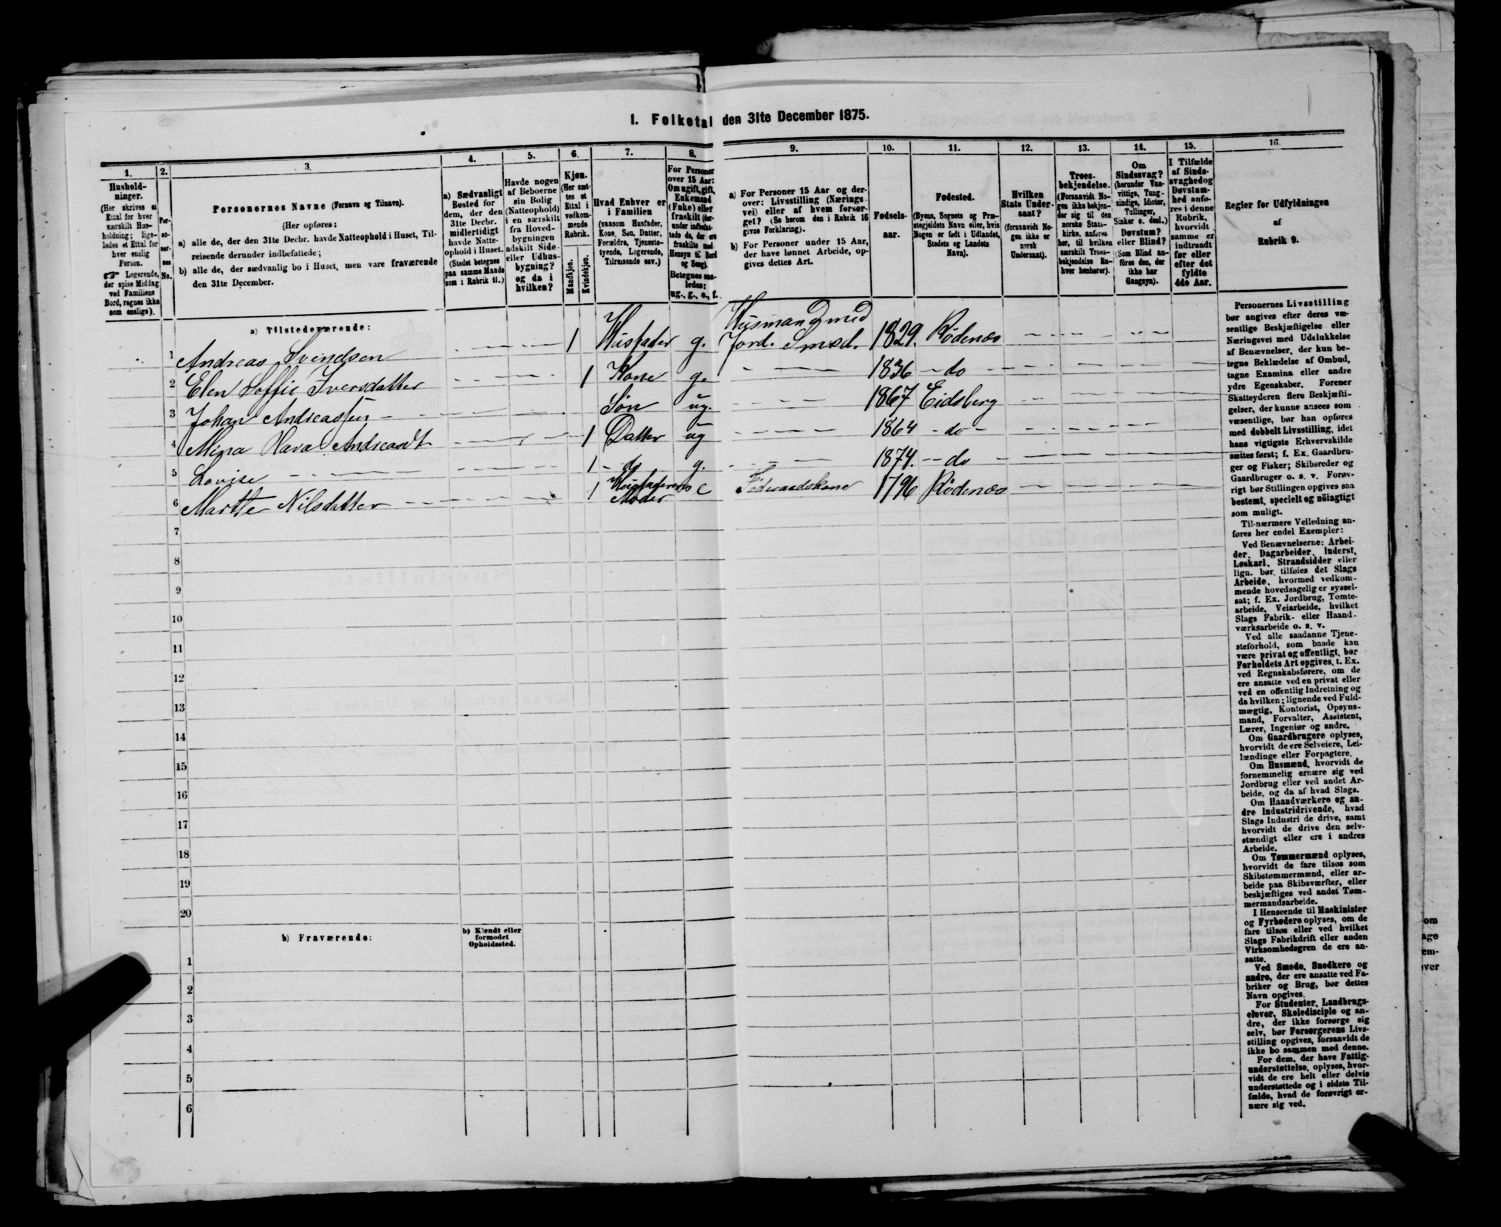 I. Folketal den 31te December 1875.
1.
2.
3.
4.
5.
6.
7.
8.
9.
10.
11.
12.
13.
14.
15.
16.
Hushold-
ninger.
(Her skrives et
Ettal for hver
særskilt Hus-
holdning; lige-
ledes et Ettal for
hver enslig
Person.
☞ Logerende,
der spise Middag
ved Familiens
Bord, regnes ikke
som enslige).
Per-
soner-
nes
No.
Personernes Navne (Fornavn og Tilnavn).
(Her opføres:
a) alle de, der den 31te Decbr. havde Natteophold i Huset, Til-
reisende derunder indbefattede;
b) alle de, der sædvanlig bo i Huset, men vare fraværende
den 31te December.
a) Sædvanligt
Bosted for
dem, der den
31te Decbr.
midlertidigt
havde Natte-
ophold i Huset.
(Stedet betegnes
paa samme Maade
som i Rubrik 11.)
Havde nogen
af Beboerne
sin Bolig
(Natteophold)
i en særskilt
fra Hoved-
bygningen
adskilt Side-
eller Udhus-
bygning?
og da i
hvilken?
Kjøn.
(Her sæt-
tes et
Ettal i
vedkom-
mende
Rubrik.
Mandkjøn.
Kvindekjøn.
Hvad Enhver er
i Familien
(saasom Husfader,
Kone, Søn, Datter,
Forældre, Tjeneste-
tyende, Logerende,
Tilreisende osv.)
For Personer
over 15 Aar:
Om ugift, gift,
Enkemand
(Enke) eller
fraskilt (der-
under indbefat-
tede de, der ere
fraskilte med
Hensyn til Bord
og Seng).
Betegnes saa-
ledes:
ug., g., e., f.
a) For Personer 15 Aar og der-
over: Livsstilling (Nærings-
vei) eller af hvem forsør-
get? (Se herom den i Rubrik 16
gives Forklaring).
b) For Personer under 15 Aar,
der have lønnet Arbeide, op-
gives dettes Art.
Fødsels-
aar.
Fødested.
(Byens, Sognets og Præ-
stegjeldets Navn eller, hvis
Nogen er født i Udlandet,
Stedets og Landets
Navn).
Hvilken
Stats Under-
saat?
(forsaavidt No-
gen ikke er
norsk
Undersaat).
Troes-
bekjendelse.
(Forsaavidt No-
gen ikke bekjen-
der sig til den
norske Stats-
kirke, anføres
her, til hvilken
særskilt Troes-
bekjendelse En-
hver henhører).
Om
Sindssvag?
(herunder Van-
vittige, Tung-
sindige, Idioter,
Tullinger,
Sinker o. desl.)
Døvstum?
eller Blind?
(Som Blind an-
føres den, der
ikke har
Gangsyn).
I Tilfælde
af Sinds-
svaghed og
Døvstum-
hed anfø-
res i denne
Rubrik,
hvorvidt
samme er
indtraadt
før eller
efter det
fyldte
4de Aar.
Regler for Udfyldningen
af
Rubrik 9.
a) Tilstedeværende:
1 Andreas Svendsen 1 Husfader g. Husmand med Jord. 1829. Rødenæs
2 Elen Soffie Iversdatter 1 Kone g. 1836 do
3 Johan Andreassen Søn ug. 1867 Eidsberg
4 Mina 1 Datter ug 1864 do
5 Lovise 1 do g. 1874. do
6 Marthe Nilsdatter 1 Husfaderens Moder e Føderaadskone 1796 Rødenæs
7
8
9
10
11
12
13
14
15
16
17
18
19
20
b) Fraværende:
b) Kjendt eller
formodet
Opholdssted.
1
2
3
4
5
6
Personernes Livsstilling
bør angives efter deres væ-
sentlige Beskjæftigelse eller
Næringsvei med Udelukkelse
af Benævnelser, der kun be-
tegne Beklædelse af Ombud,
tagne Examina eller andre
ydre Egenskaber. Forener
Skatteyderen flere Beskjæfti-
gelser, der kunne ansees som
væsentlige, bør han opføres
med dobbelt Livsstilling, idet
hans vigtigste Erhvervskilde
sættes først; f. Ex. Gaardbru-
ger og Fisker; Skibsreder og
Gaardbruger o. s. v. Forøv-
rigt bør Stillingen opgives saa
bestemt, specielt og nøiagtigt
som muligt.
Til nærmere Veiledning an-
føres her endel Exempler:
Ved Benævnelserne: Arbei-
der, Dagarbeider, Inderst,
Løskarl, Strandsidder eller
lign. bør tilføies det Slags
Arbeide, hvormed vedkom-
mende hovedsagelig er syssel-
sat; f. Ex. Jordbrug, Tomte-
arbeide, Veiarbeide, hvilket
Slags Fabrik- eller Haand-
værksarbeide o. s. v.
Ved alle saadanne Tjene-
steforhold, som baade kan
være privat og offentligt, bør
Forholdets Art opgives, t. Ex.
ved Regnskabsførere, om de
ere ansatte ved en privat eller
ved en offentlig Indretning og
da hvilken; lignende ved Fuld-
mægtig, Kontorist, Opsyns-
mand, Forvalter, Assistent,
Lærer, Ingeniør og andre.
Om Gaardbrugere oplyses,
hvorvidt de ere Selveiere, Lei-
lændinge eller Forpagtere.
Om Husmænd, hvorvidt de
fornemmelig ernære sig ved
Jordbrug eller ved andet Ar-
beide, og da af hvad Slags.
Om Haandværkere og an-
dre Industridrivende, hvad
Slags Industri de drive, samt
hvorvidt de drive den selv-
stændigt eller ere i andres
Arbeide.
Om Tømmermænd oplyses,
hvorvidt de fare tilsøs som
Skibstømmermænd, eller ar-
beide paa Skibsværfter, eller
beskjæftiges ved andet Tøm-
mermandsarbeide.
I Henseende til Maskinister
og Fyrbødere oplyses, om de
fare tilsøs eller ved hvilket
Slags Fabrikdrift eller anden
Virksomhedsgren de ere an-
satte.
Ved Smede, Snedkere og
andre, der ere ansatte ved Fa-
briker og Brug, bør dettes
Navn opgives.
For Studenter, Landbrugs-
elever, Skoledisciple og an-
dre, der ikke forsørge sig
selv, bør Forsørgerens Livs-
stilling opgives, forsaavidt de
ikke bo sammen med denne.
For dem, der have Fattig-
understøttelse, oplyses, hvor-
vidt de ere helt eller delvis
understøttede og i sidste Til-
fælde, hvad de forøvrigt er-
nære sig ved.